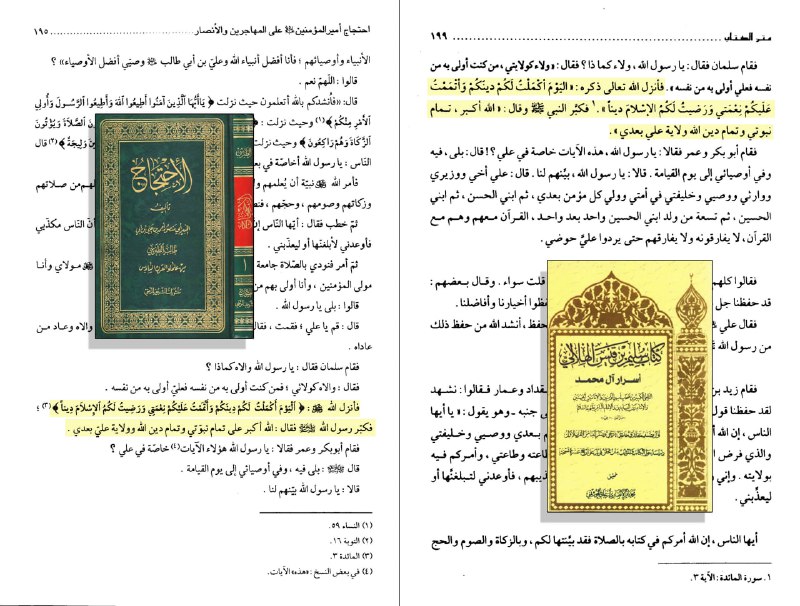 متن الكتاب ........ ١٩٩
فقام سلمان فقال: يا رسول الله، ولاء كما ذا؟ فقال: «ولاء كولايتي، من كنت أولى به من
نفسه فعلي أولى به من نفسه». فأنزل الله تعالى ذكره: «اليَوْمَ أكْمَلْتُ لَكُمْ دينَكُمْ وَأتْمَمْتُ
عَلَيْكُمْ نِعْمَتي وَرَضيتُ لَكُمُ الإسْلامَ ديناً».١ فكبّر النبي ﷺ وقال: «الله أكبر، تمام
نبوتي وتمام دين الله ولاية علي بعدي».
فقام أبو بكر وعمر فقالا: يا رسول الله، هذه الآيات خاصة في علي؟! قال: بلى، فيه
وفي أوصيائي إلى يوم القيامة. قالا: يا رسول الله، بيّنهم لنا. قال: علي أخي ووزيري
ووارثي ووصيي وخليفتي في أمتي وولي كل مؤمن بعدي، ثم ابني الحسن، ثم ابني
الحسين، ثم تسعة من ولد ابني الحسين واحد بعد واحد، القرآن معهم وهم مع
القرآن، لا يفارقونه ولا يفارقهم حتى يردوا عليَّ حوضي.
فقالوا كلهم
قلت سواء. وقال بعضهم:
قد حفظنا جل
أخيارنا وأفاضلنا.
فقال علي
حفظ، أنشد الله من حفظ ذلك
من رسول الله
فقام زيد بن
مقداد وعمار فقالوا: نشهد
لقد حفظنا قول
جنبه ـ وهو يقول: «يا أيها
الناس، إن الله
بعدي ووصيي وخليفتي
والذي فرض
طاعته وطاعتي، وأمركم فيه
بولايته. وإني
فأوعدني لتبلغنّها أو
ليعذّبني.
أيها الناس، إن الله أمركم في كتابه بالصلاة فقد بيّنتها لكم، وبالزكاة والصوم والحج
١. سورة المائدة: الآية ٣.
كتاب سليم بن قيس الهلالي
أسرار آل محمد
احتجاج أمير المؤمنين ﷷ على المهاجرين والأنصار ........ ١٩٥
الأنبياء وأوصيائهم؛ فأنا أفضل أنبياء الله وعليّ بن أبي طالب وصيّي أفضل الأوصياء»؟
قالوا: اللّهمّ نعم.
قال: «فأنشدكم بالله أتعلمون حيث نزلت ﴿يَاأَيُّهَا الَّذِينَ آمَنُوا أَطِيعُوا اللهَ وَأَطِيعُوا الرَّسُولَ وَأُولِي
الأَمْرِ مِنْكُمْ﴾(١) وحيث نزلت:
الصَّلَاةَ وَيُؤْتُونَ
الزَّكَاةَ وَهُمْ رَاكِعُونَ﴾ وحيث نزلت
وَلِيجَةً﴾(٢) قال
النّاس: يا رسول الله أخاصّة في بعض
فأمر الله نبيّه أن يُعلمهم
من صلاتهم
وزكاتهم وصومهم، وحجّهم،
ثمّ خطب فقال: أيّها النّاس
أنّ النّاس مكذّبي
فأوعدني لأبلغنّها أو ليعذّبني.
ثمّ أمر فنودي بالصّلاة جامعة
مولاي وأنا
مولى المؤمنين، وأنا أولى بهم من
قالوا: بلى يا رسول الله.
قال: قم يا علي؛ فقمت، فقال
والاه وعاد من
عاداه.
فقام سلمان فقال: يا رسول الله والاه كماذا؟
فقال: والاه كولائي؛ فمن كنت أولى به من نفسه فعليّ أولى به من نفسه.
فأنزل الله ﷻ: ﴿الْيَوْمَ أَكْمَلْتُ لَكُمْ دِينَكُمْ وَأَتْمَمْتُ عَلَيْكُمْ نِعْمَتِي وَرَضِيتُ لَكُمُ الإِسْلَامَ دِيناً﴾(٣)؛
فكبّر رسول الله ﷺ فقال: الله أكبر على تمام نبوّتي وتمام دين الله وولاية عليّ بعدي.
فقام أبوبكر وعمر فقالا: يا رسول الله هؤلاء الآيات(٤) خاصّة في علي؟
قال ﷺ: بلى فيه، وفي أوصيائي إلى يوم القيامة.
قالا: يا رسول الله بيّنهم لنا.
(١) النساء ٥٩.
(٢) التوبة ١٦.
(٣) المائدة ٣.
(٤) في بعض النسخ: «هذه» الآيات.
الاحتجاج
تأليف
١